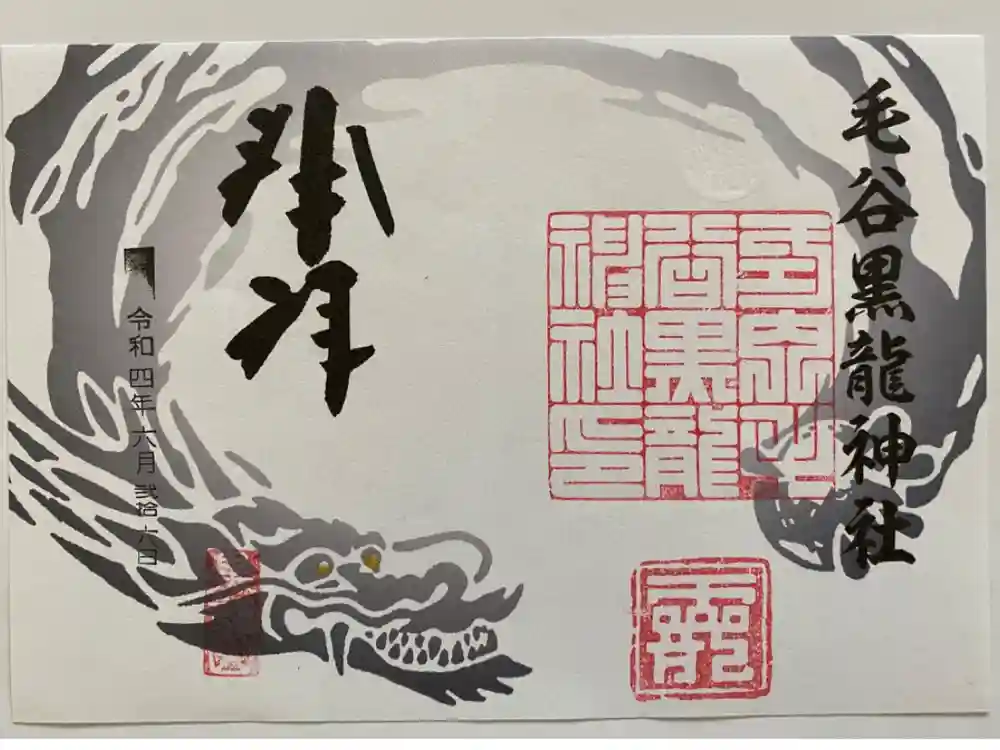 毛谷黒龍神社
谷黒龍
神社印
奉拝
令和四年六月弐拾六日